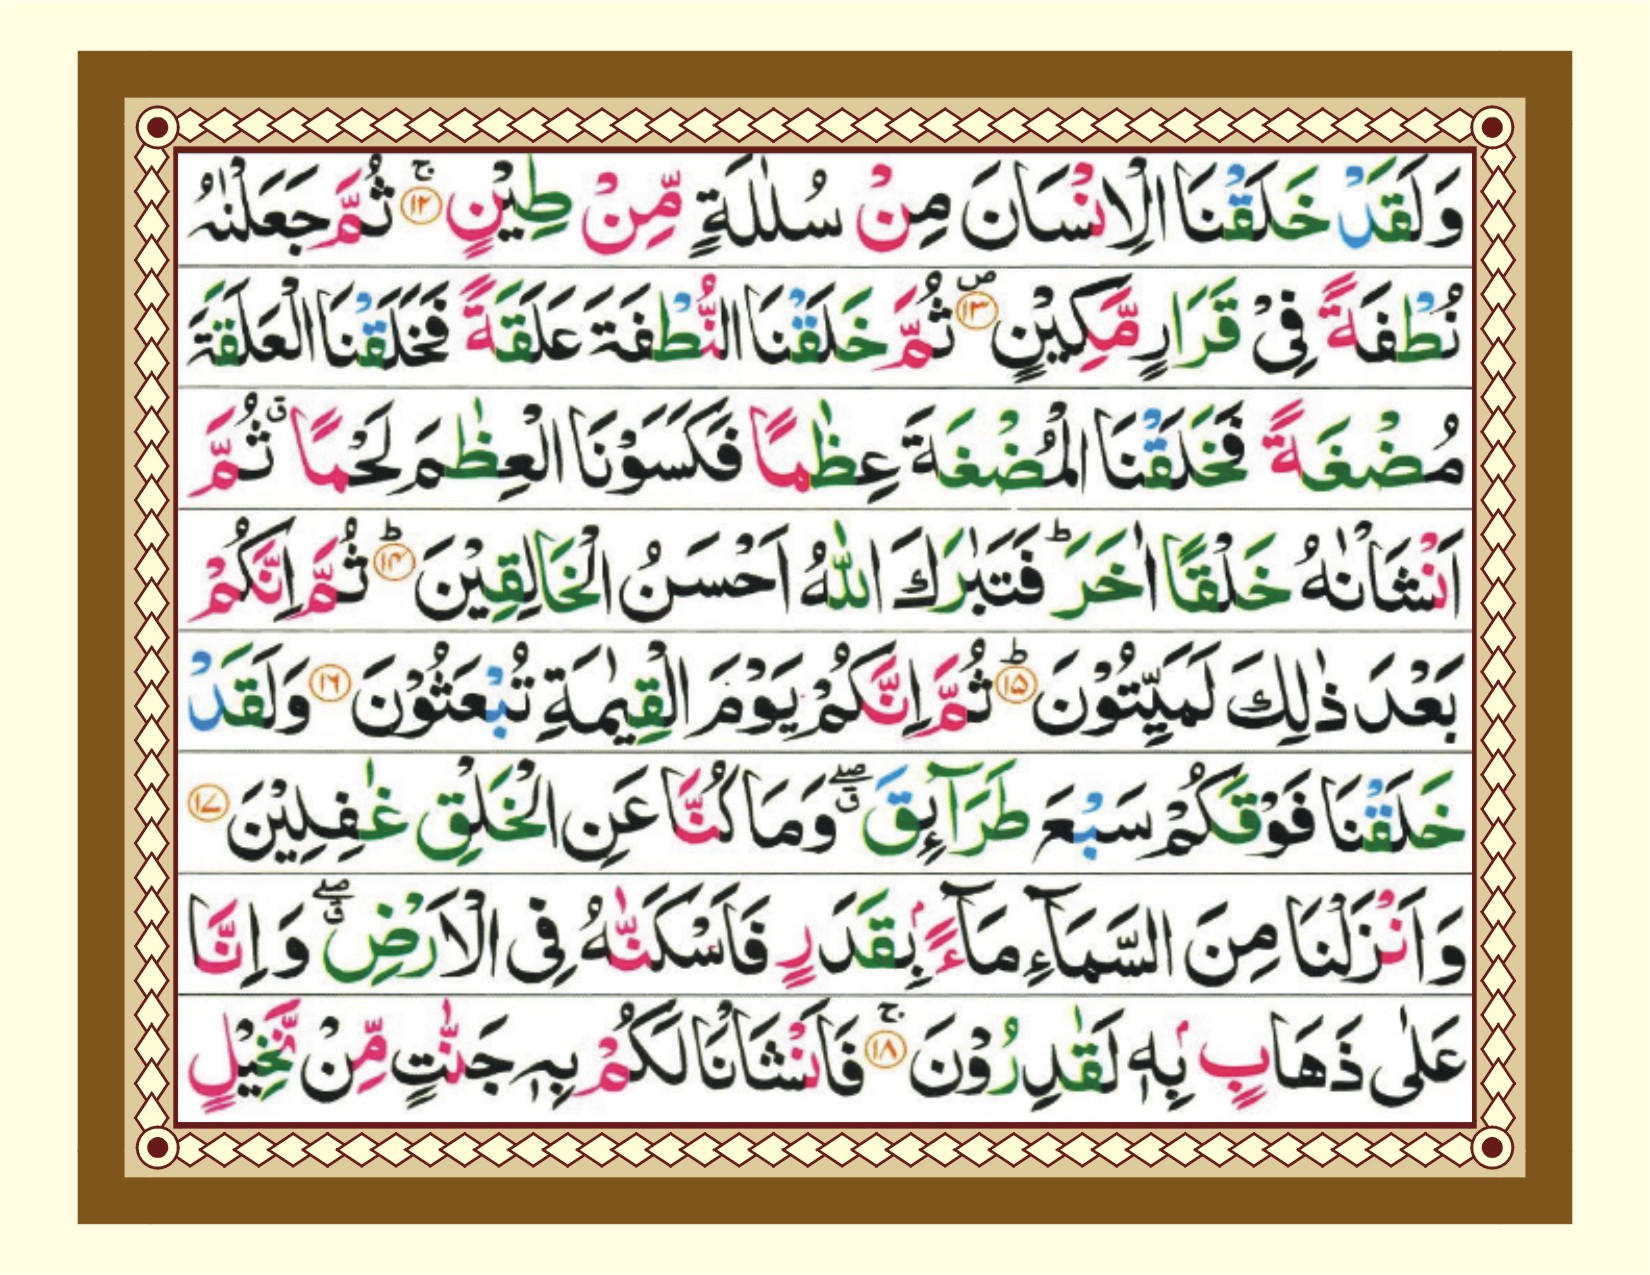 وَلَقَدْ خَلَقْنَا الْاِنْسَانَ مِنْ سُلٰلَةٍ مِّنْ طِيْنٍ ۚ ﴿۱۲﴾ ثُمَّ جَعَلْنٰهُ
نُطْفَةً فِیْ قَرَارٍ مَّكِيْنٍ ۪ ﴿۱۳﴾ ثُمَّ خَلَقْنَا النُّطْفَةَ عَلَقَةً فَخَلَقْنَا الْعَلَقَةَ
مُضْغَةً فَخَلَقْنَا الْمُضْغَةَ عِظٰمًا فَكَسَوْنَا الْعِظٰمَ لَحْمًا ق ثُمَّ
اَنْشَاْنٰهُ خَلْقًا اٰخَرَ ؕ فَتَبٰرَكَ اللّٰهُ اَحْسَنُ الْخَالِقِيْنَ ؕ ﴿۱۴﴾ ثُمَّ اِنَّكُمْ
بَعْدَ ذٰلِكَ لَمَيِّتُوْنَ ؕ ﴿۱۵﴾ ثُمَّ اِنَّكُمْ يَوْمَ الْقِيٰمَةِ تُبْعَثُوْنَ ﴿۱۶﴾ وَلَقَدْ
خَلَقْنَا فَوْقَكُمْ سَبْعَ طَرَآئِقَ ۖق وَمَا كُنَّا عَنِ الْخَلْقِ غٰفِلِيْنَ ﴿۱۷﴾
وَاَنْزَلْنَا مِنَ السَّمَآءِ مَآءًۢ بِقَدَرٍ فَاَسْكَنّٰهُ فِی الْاَرْضِ ۖق وَاِنَّا
عَلٰى ذَهَابٍۢ بِهٖ لَقٰدِرُوْنَ ۚ ﴿۱۸﴾ فَاَنْشَاْنَا لَكُمْ بِهٖ جَنّٰتٍ مِّنْ نَّخِيْلٍ